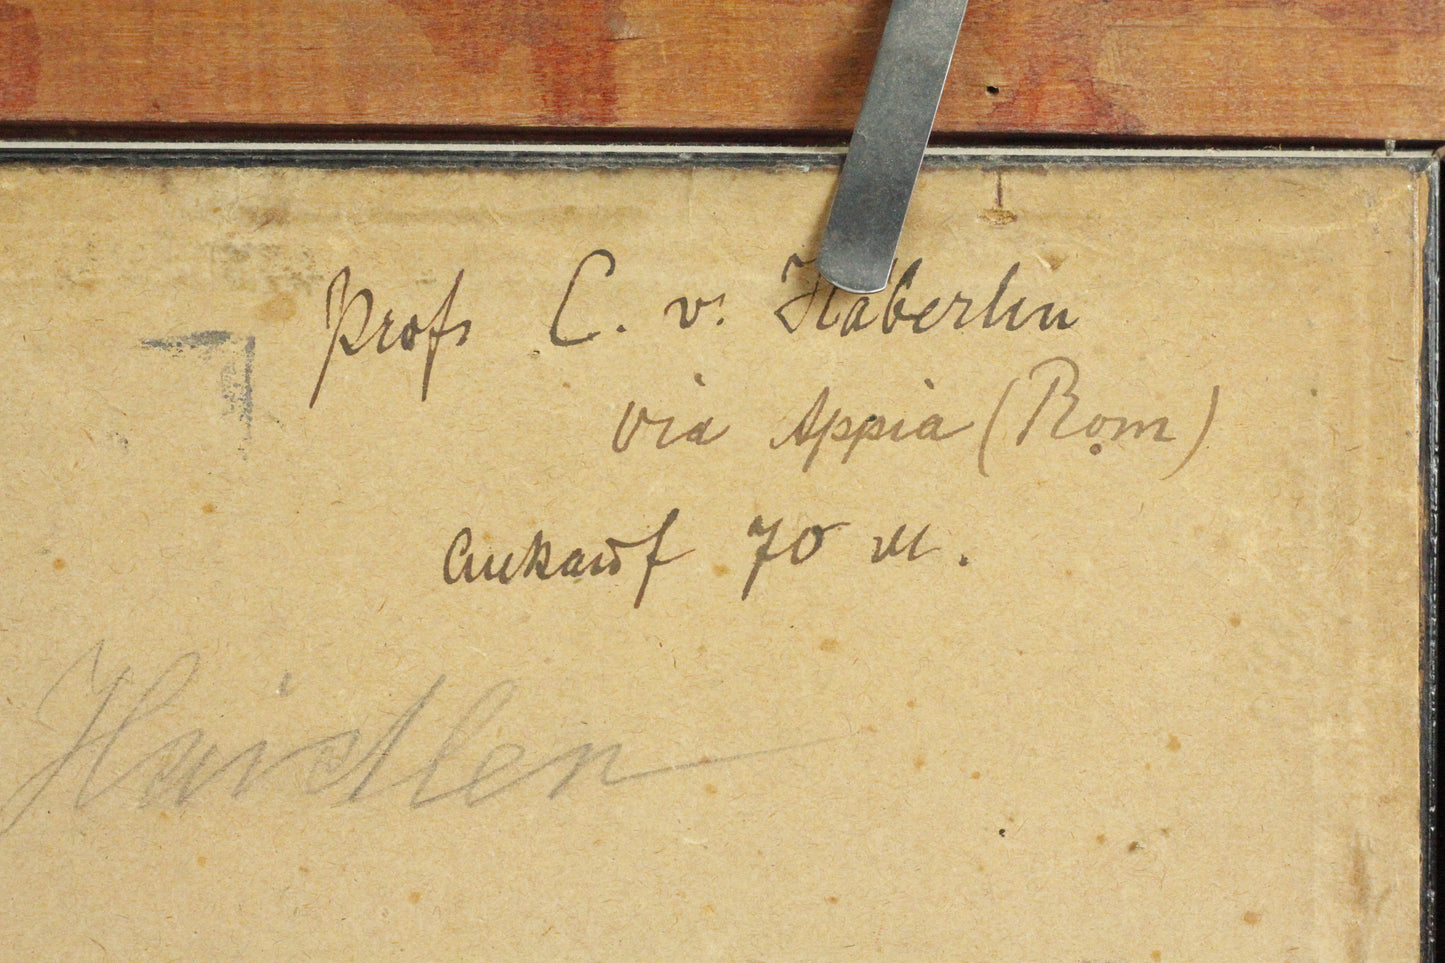 Prof. C. v. Häberlin
via Appia (Rom)
Ankauf 70 M.